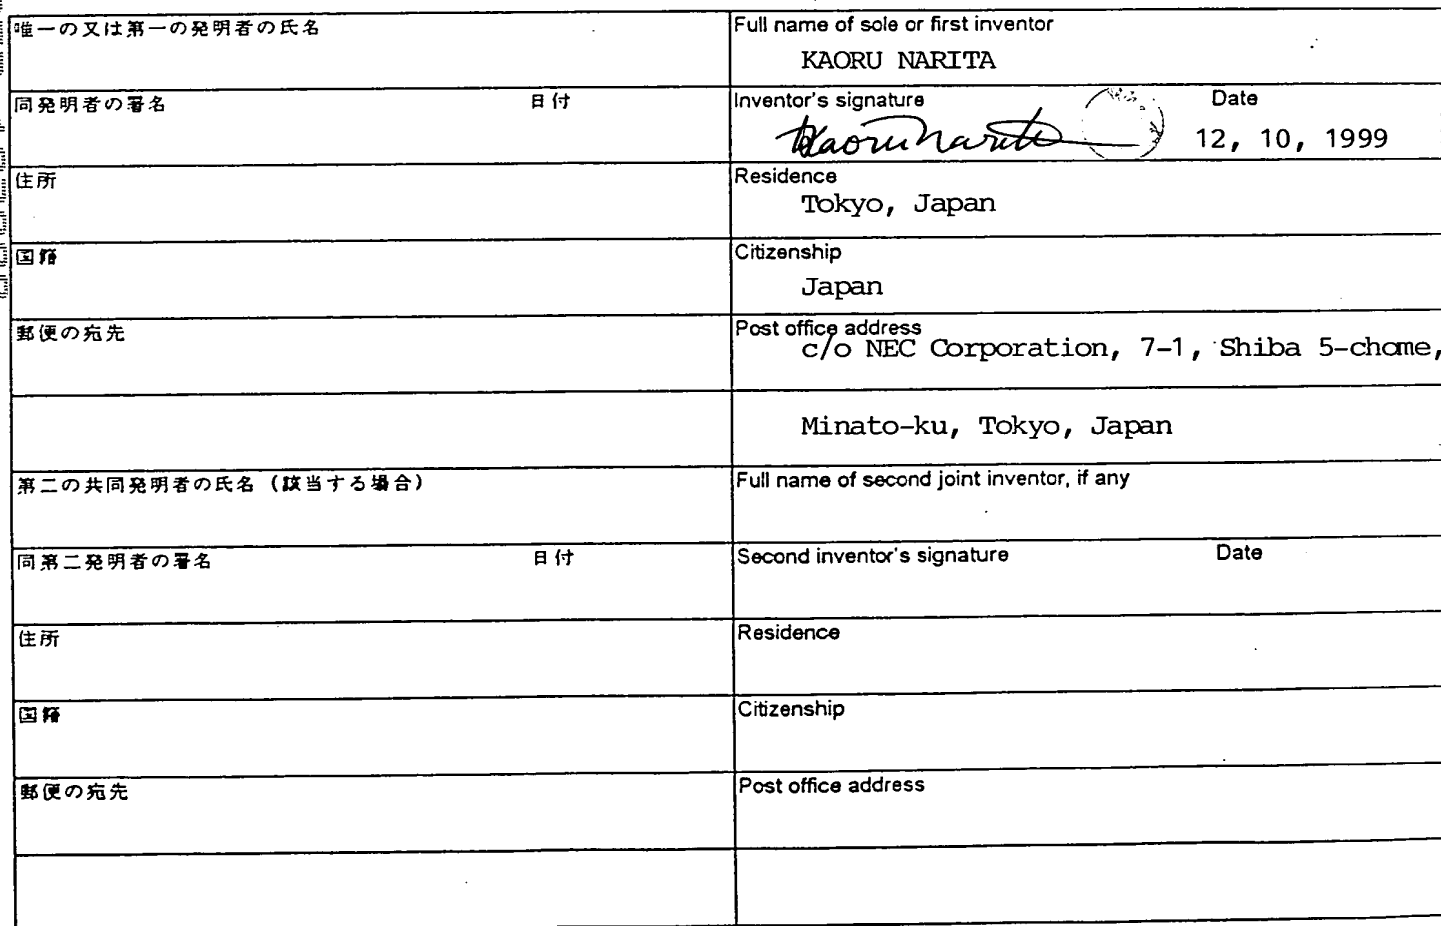 唯一の又は第一の発明者の氏名
Full name of sole or first inventor
KAORU NARITA
同発明者の署名 日付
Inventor's signature Date
Kaoru Narita 12, 10, 1999
住所
Residence
Tokyo, Japan
国籍
Citizenship
Japan
郵便の宛先
Post office address
c/o NEC Corporation, 7-1, Shiba 5-chome,
Minato-ku, Tokyo, Japan
第二の共同発明者の氏名（該当する場合）
Full name of second joint inventor, if any
同第二発明者の署名 日付
Second inventor's signature Date
住所
Residence
国籍
Citizenship
郵便の宛先
Post office address